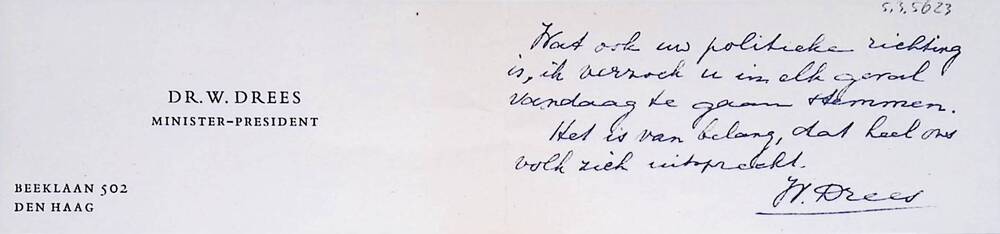 5.3.5623
DR. W. DREES
MINISTER-PRESIDENT
BEEKLAAN 502
DEN HAAG
Wat ook uw politieke richting
is, ik verzoek u in elk geval
vandaag te gaan stemmen.
Het is van belang, dat heel ons
volk zich uitspreekt.
W. Drees